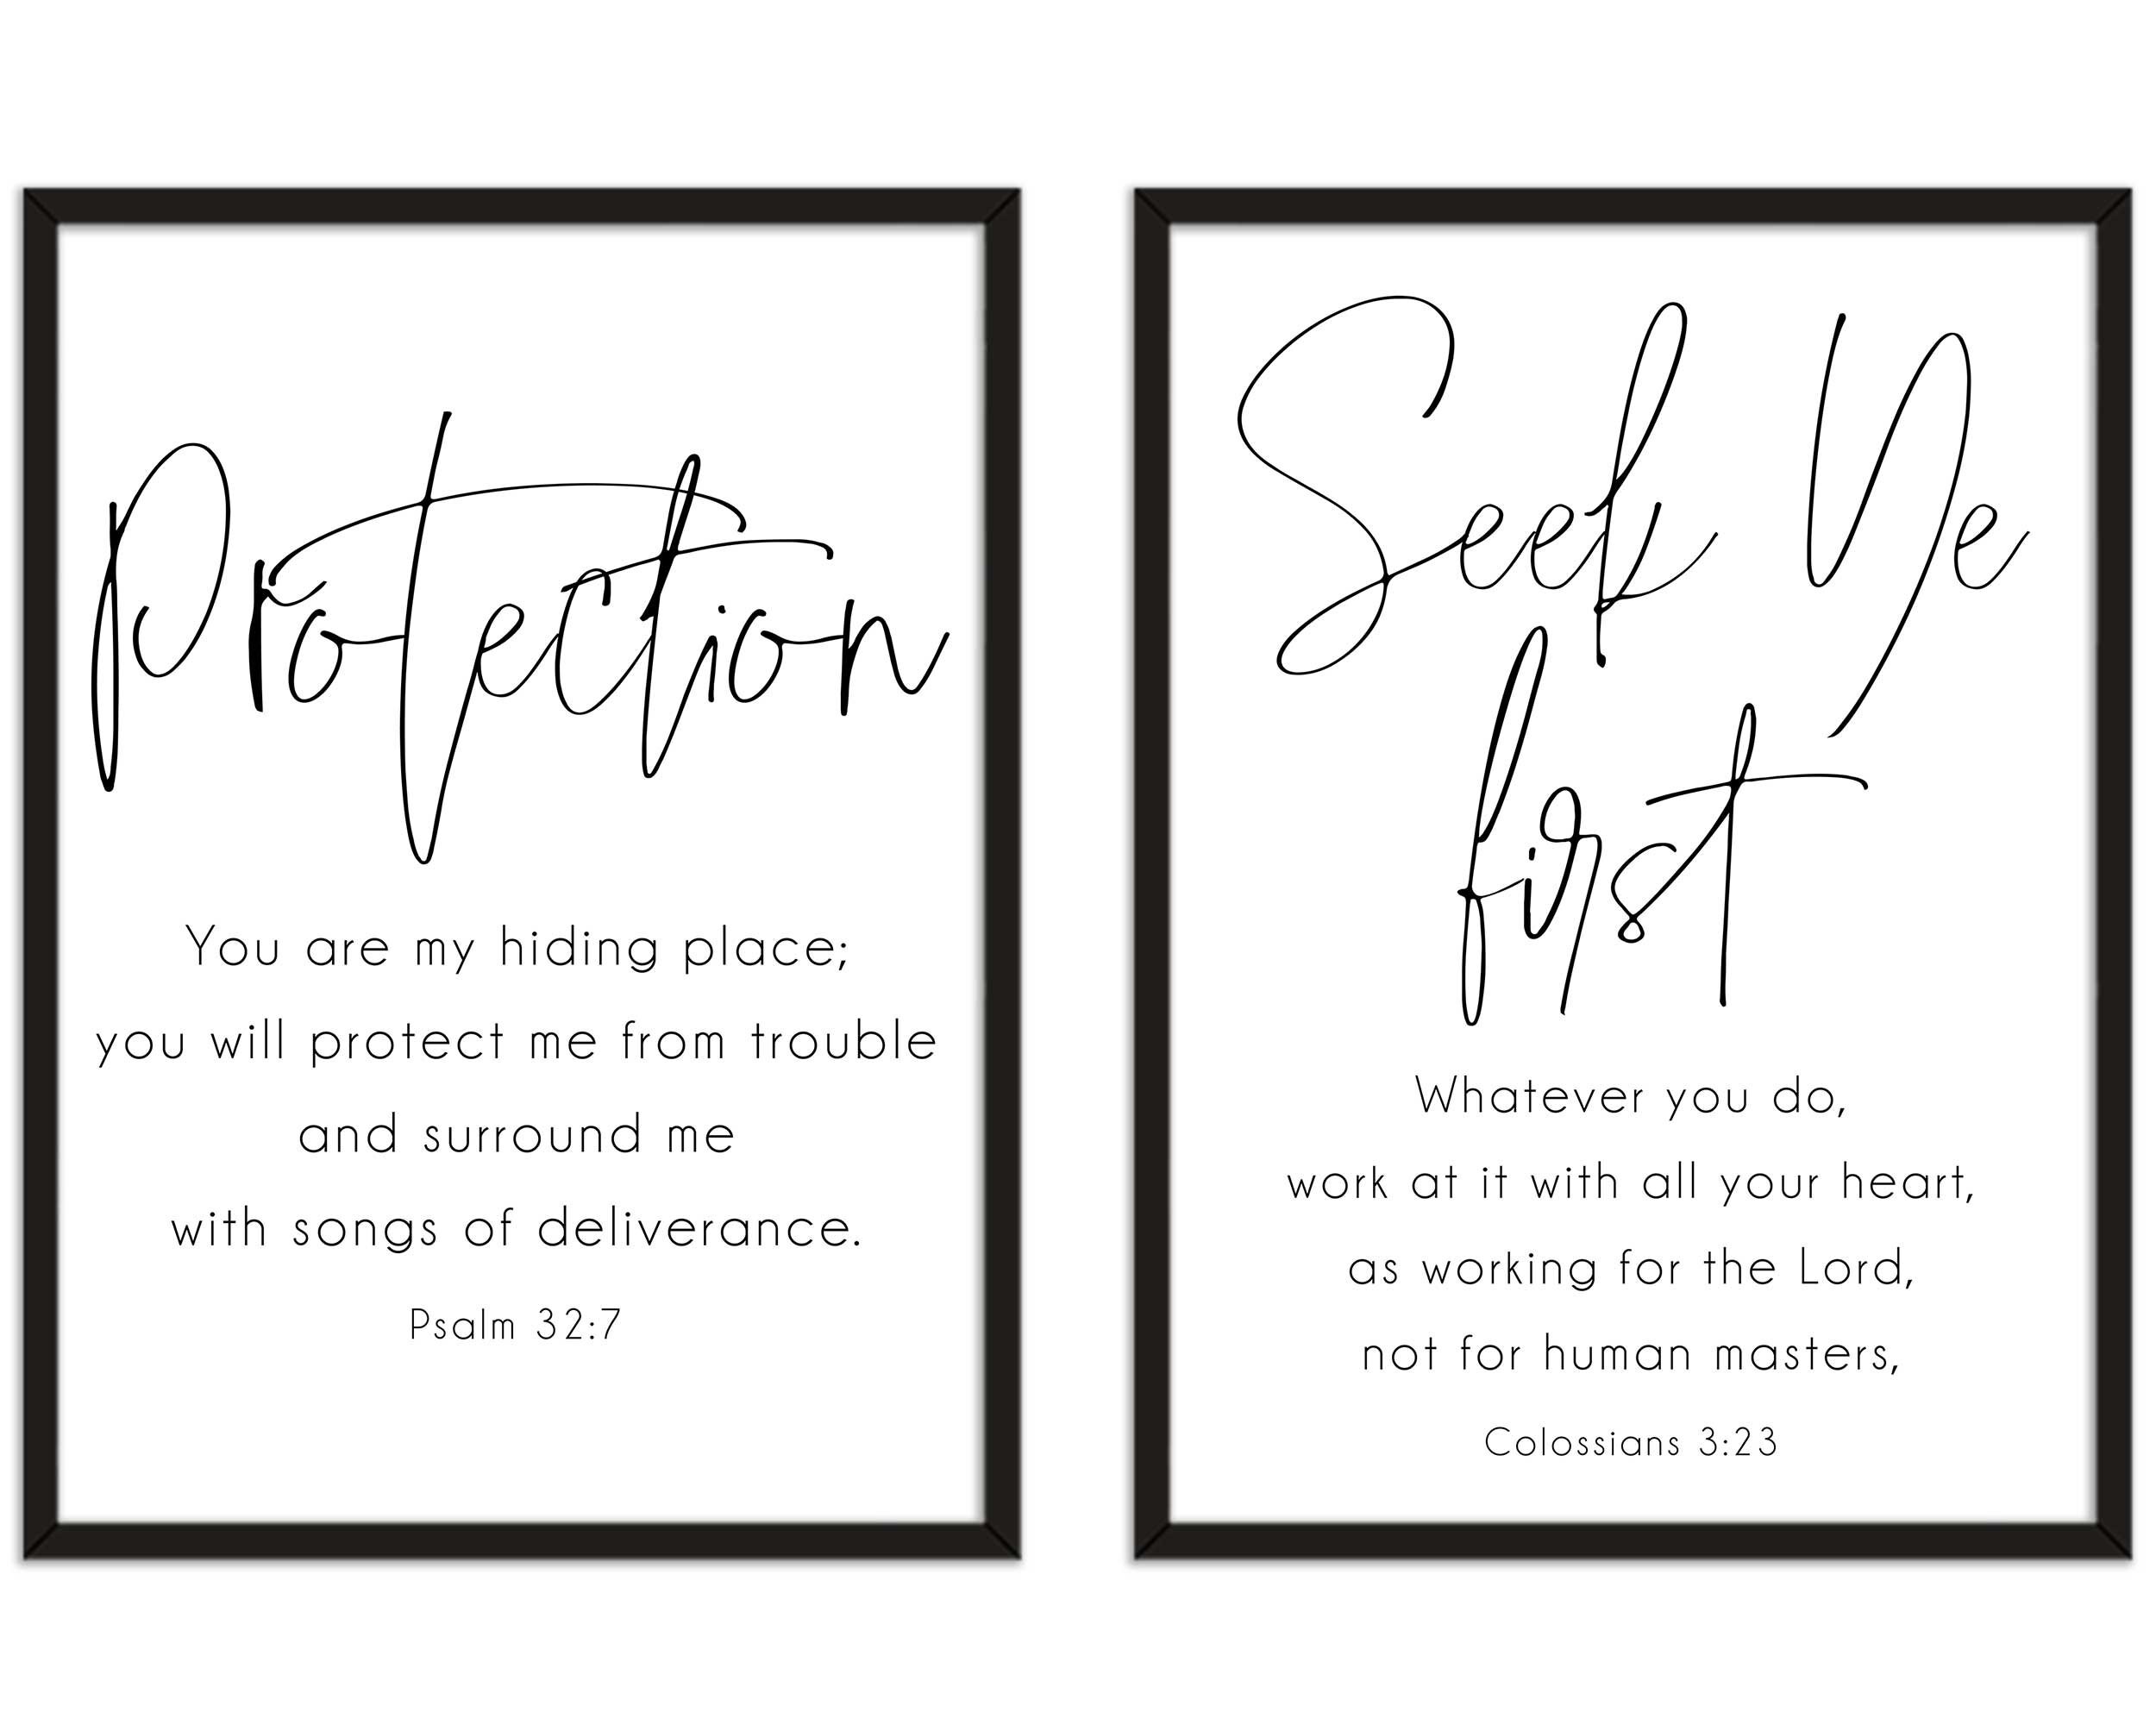 Protection
You are my hiding place;
you will protect me from trouble
and surround me
with songs of deliverance.
Psalm 32:7
Seek Ye
first
Whatever you do,
work at it with all your heart,
as working for the Lord,
not for human masters,
Colossians 3:23